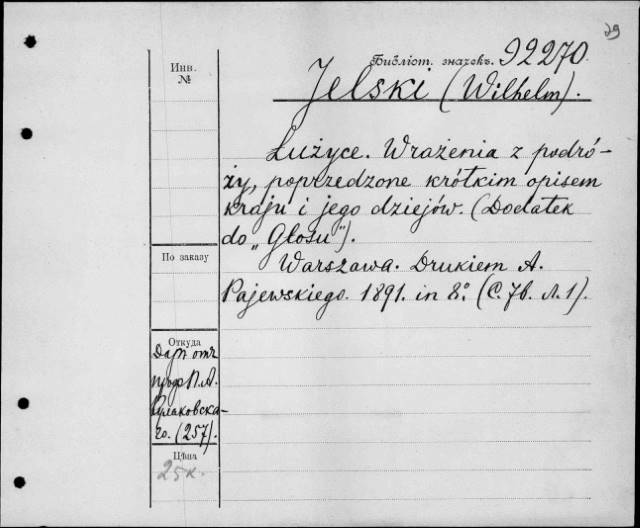 29
Библіот. значекъ. 92270.
Jelski (Wilhelm).
Инв.
№
Łużyce. Wrażenia z podró-
ży, poprzedzone krótkim opisem
kraju i jego dziejów. (Dodatek
do „Głosu").
Warszawa. Drukiem A.
Pajewskiego. 1891. in 8.º
По заказу
Откуда
Даръ отъ
проф. П. А.
Кулаковска-
го. (257).
Цѣна
25к.